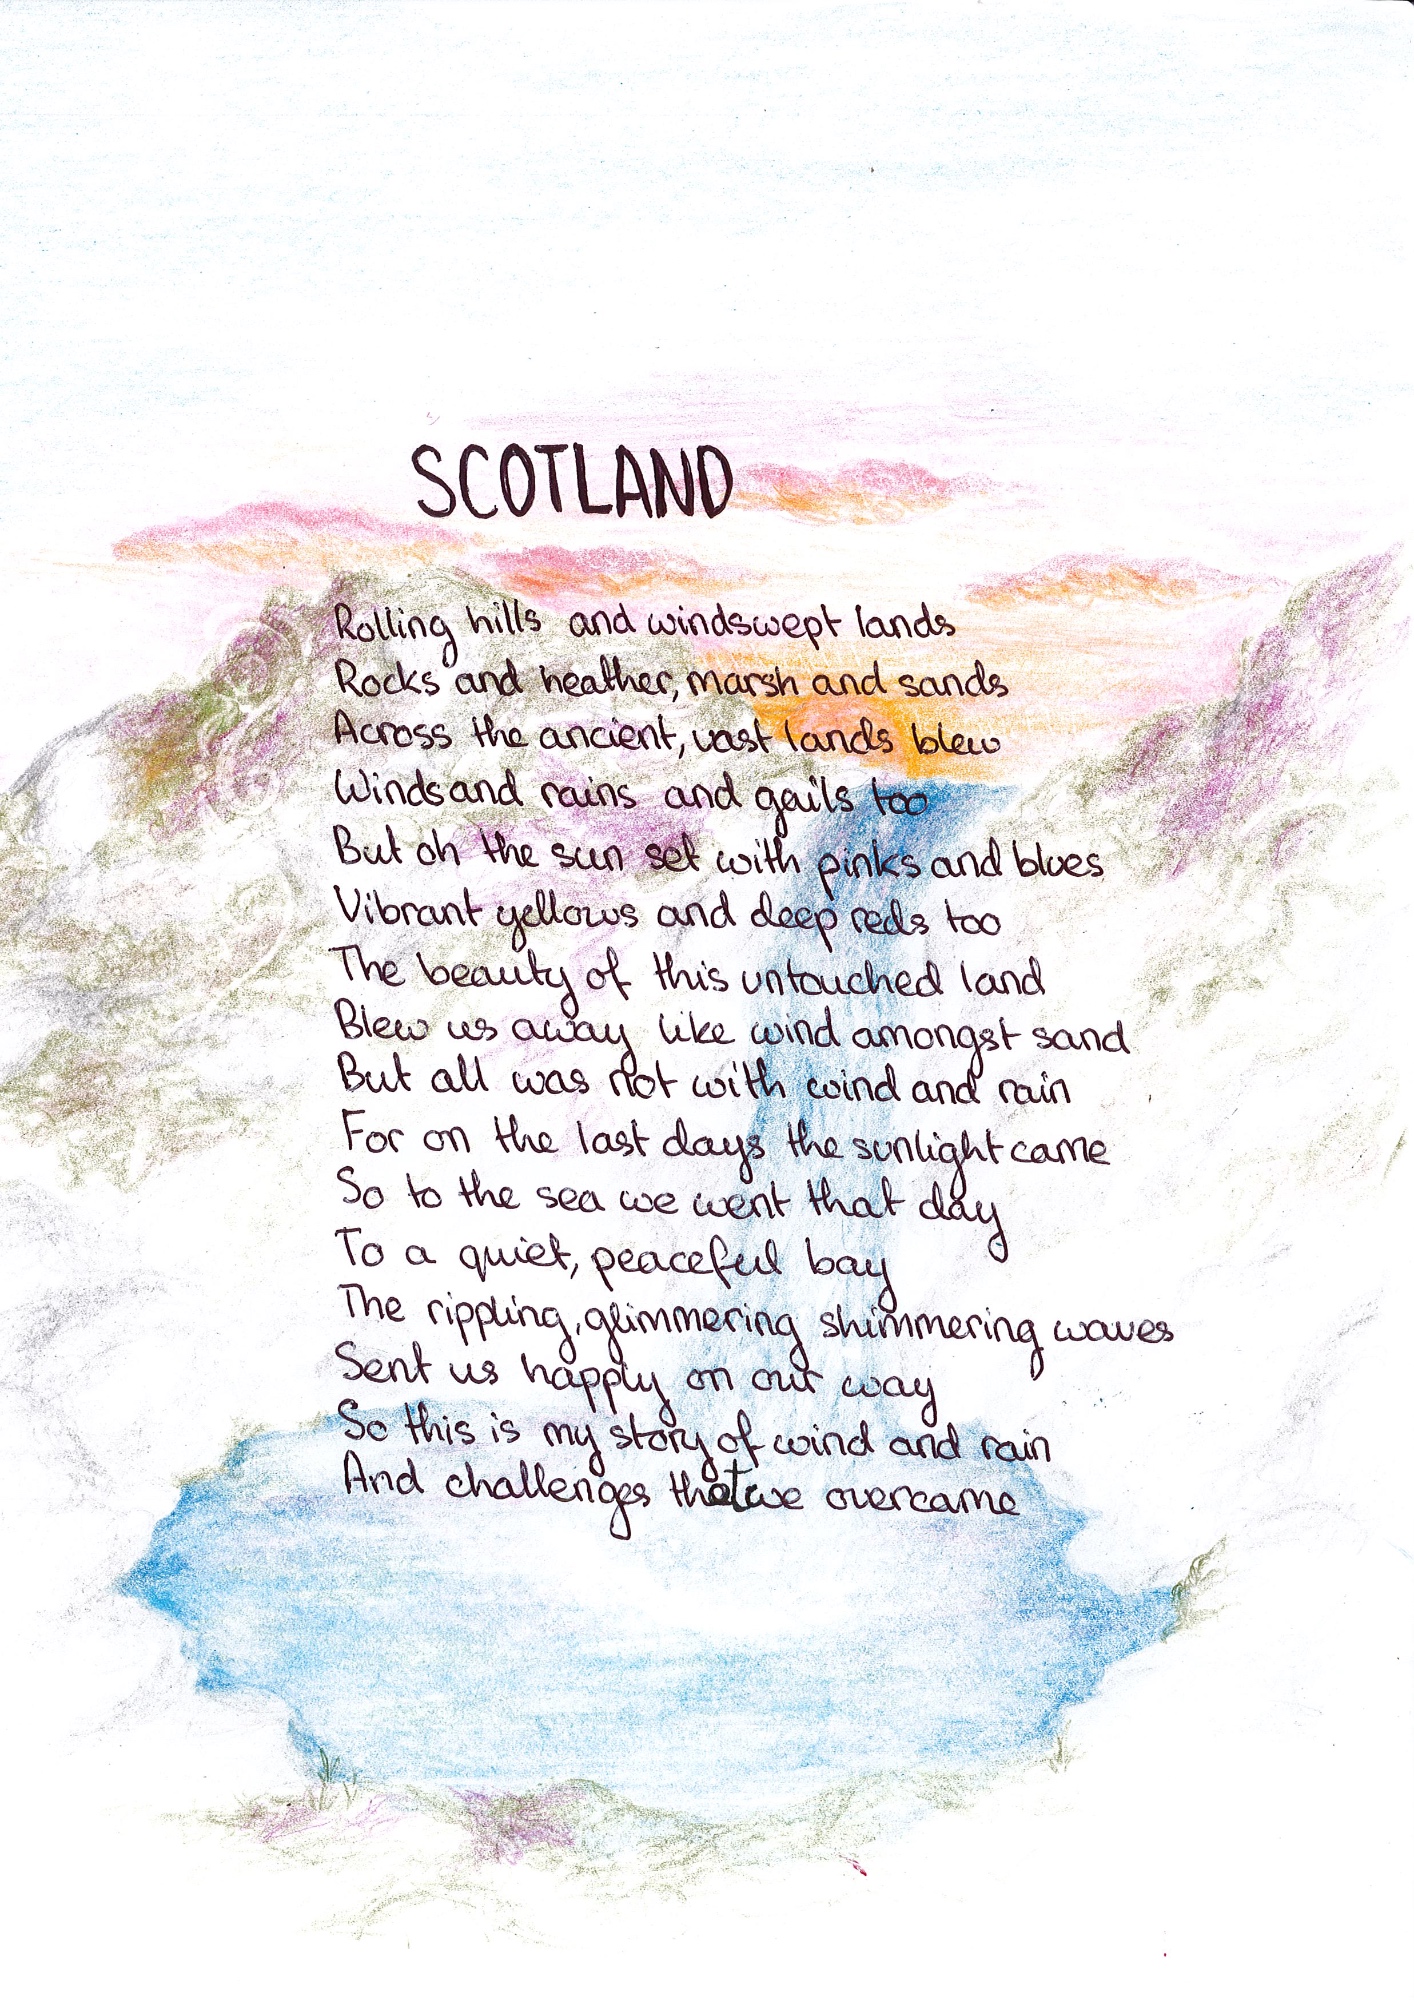 SCOTLAND
Rolling hills and windswept lands
Rocks and heather, marsh and sands
Across the ancient, vast lands blew
Winds and rains and gails too
But oh the sun set with pinks and blues
Vibrant yellows and deep reds too
The beauty of this untouched land
Blew us away like wind amongst sand
But all was not with wind and rain
For on the last days the sunlight came
So to the sea we went that day
To a quiet, peaceful bay
The rippling, glimmering shimmering waves
Sent us happly on our way
So this is my story of wind and rain
And challenges that we overcame